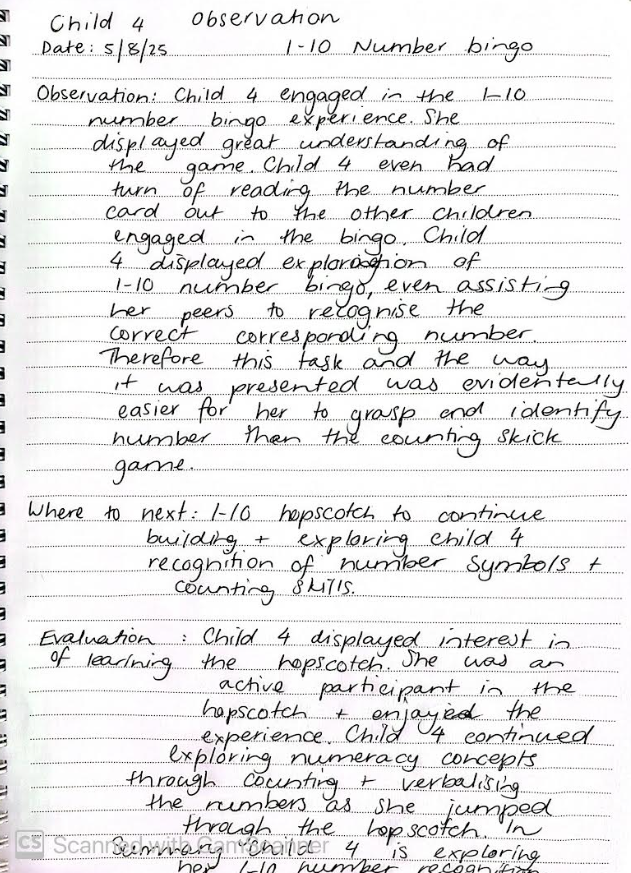 Child 4 Observation
Date: 5/8/25 1-10 Number bingo
Observation: Child 4 engaged in the 1-10
number bingo experience. She
displayed great understanding of
the game. Child 4 even had
turn of reading the number
card out to the other children
engaged in the bingo. Child
4 displayed exploration of
1-10 number bingo, even assisting
her peers to recognise the
correct corresponding number.
Therefore this task and the way
it was presented was evidentally
easier for her to grasp and identify
number than the counting skick
game.
Where to next: 1-10 hopscotch to continue
building + exploring child 4
recognition of number symbols +
counting skills.
Evaluation : Child 4 displayed interest in
of learning the hopscotch. She was an
active participant in the
hopscotch + enjoyed the
experience. Child 4 continued
exploring numeracy concepts
through counting + verbalising
the numbers as she jumped
through the hopscotch. In
Summary Child 4 is exploring
her 1-10 number recognition
CS Scanned with CamScanner